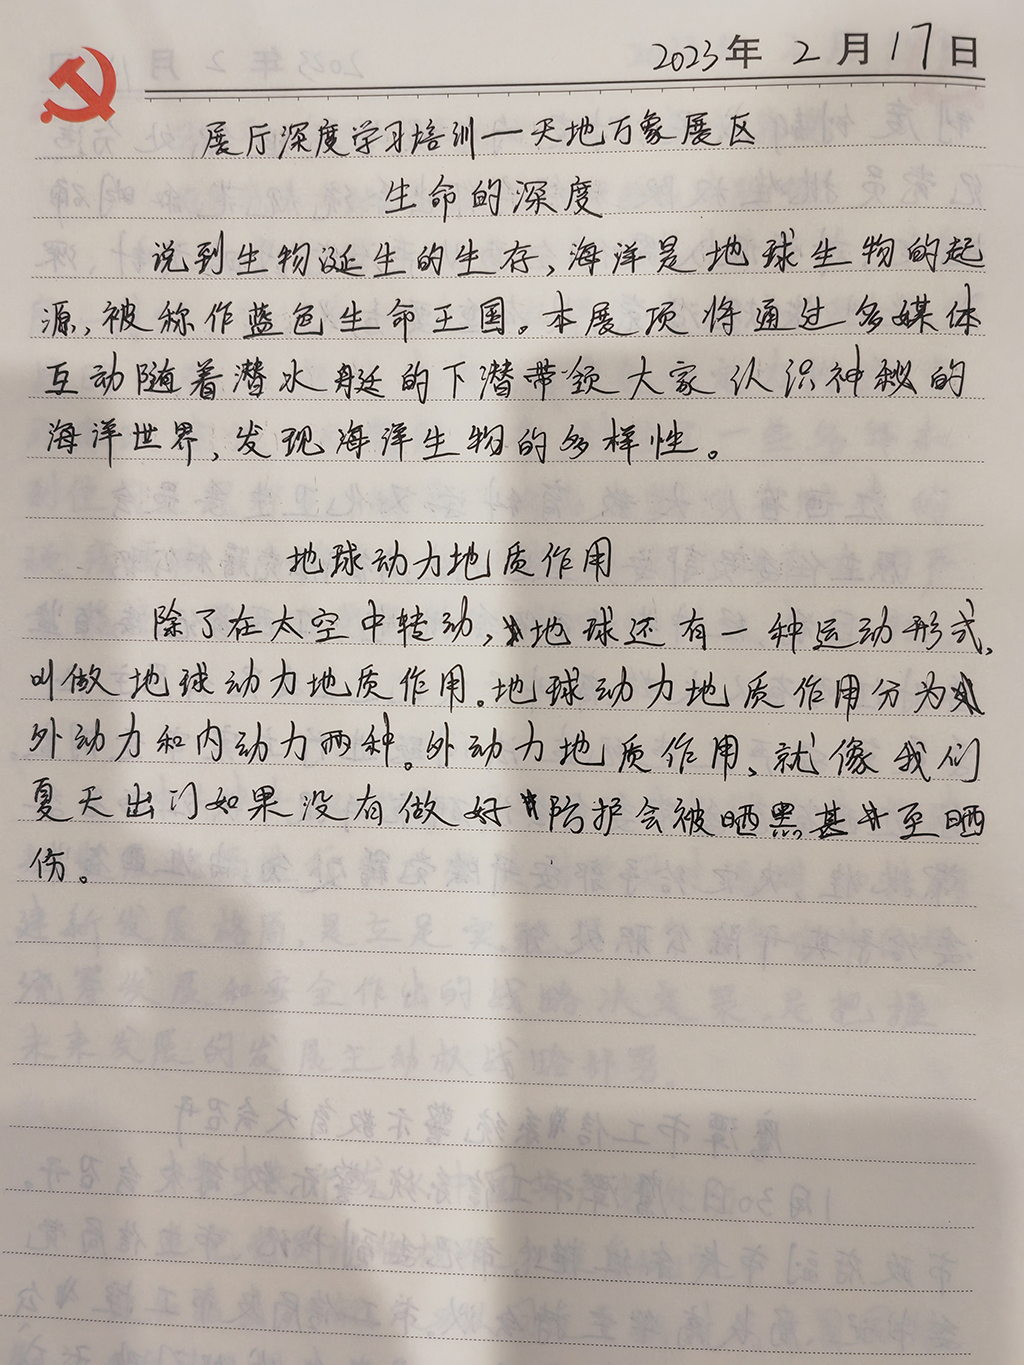 2023年2月17日
展厅深度学习培训一天地万象展区
生命的深度
说到生物诞生的生存,海洋是地球生物的起
源,被称作蓝色生命王国。本展项将通过多媒体
互动随着潜水艇的下潜带领大家认识神秘的
海洋世界,发现海洋生物的多样性。
地球动力地质作用
除了在太空中转动,地球还有一种运动形式,
叫做地球动力地质作用.地球动力地质作用分为
外动力和内动力两种。外动力地质作用、就像我们
夏天出门如果没有做好防护会被晒黑甚至晒
伤。